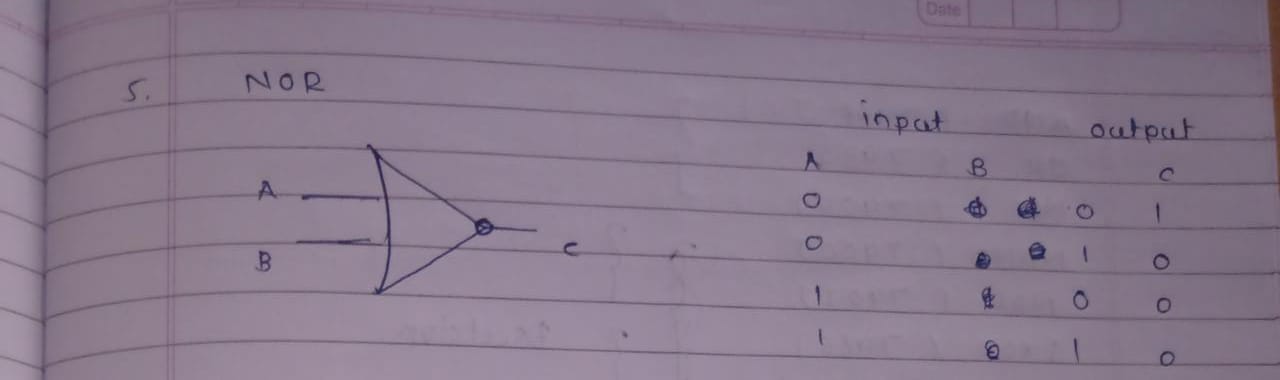 Date
5. NOR
input output
A B C
A 0 0 1
B C 0 1 0
1 0 0
1 1 0